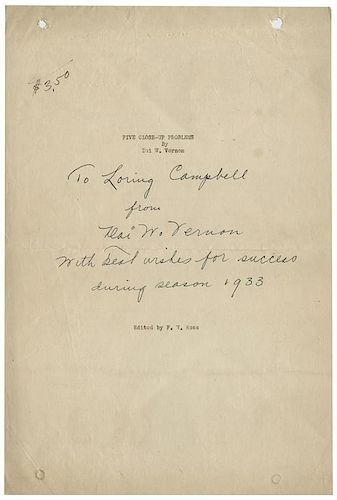 $3.50
FIVE CLOSE-UP PROBLEMS
By
Dai W. Vernon
To Loring Campbell
from
"Dai" W. Vernon
With best wishes for success
during season 1933
Edited by F. W. Rose